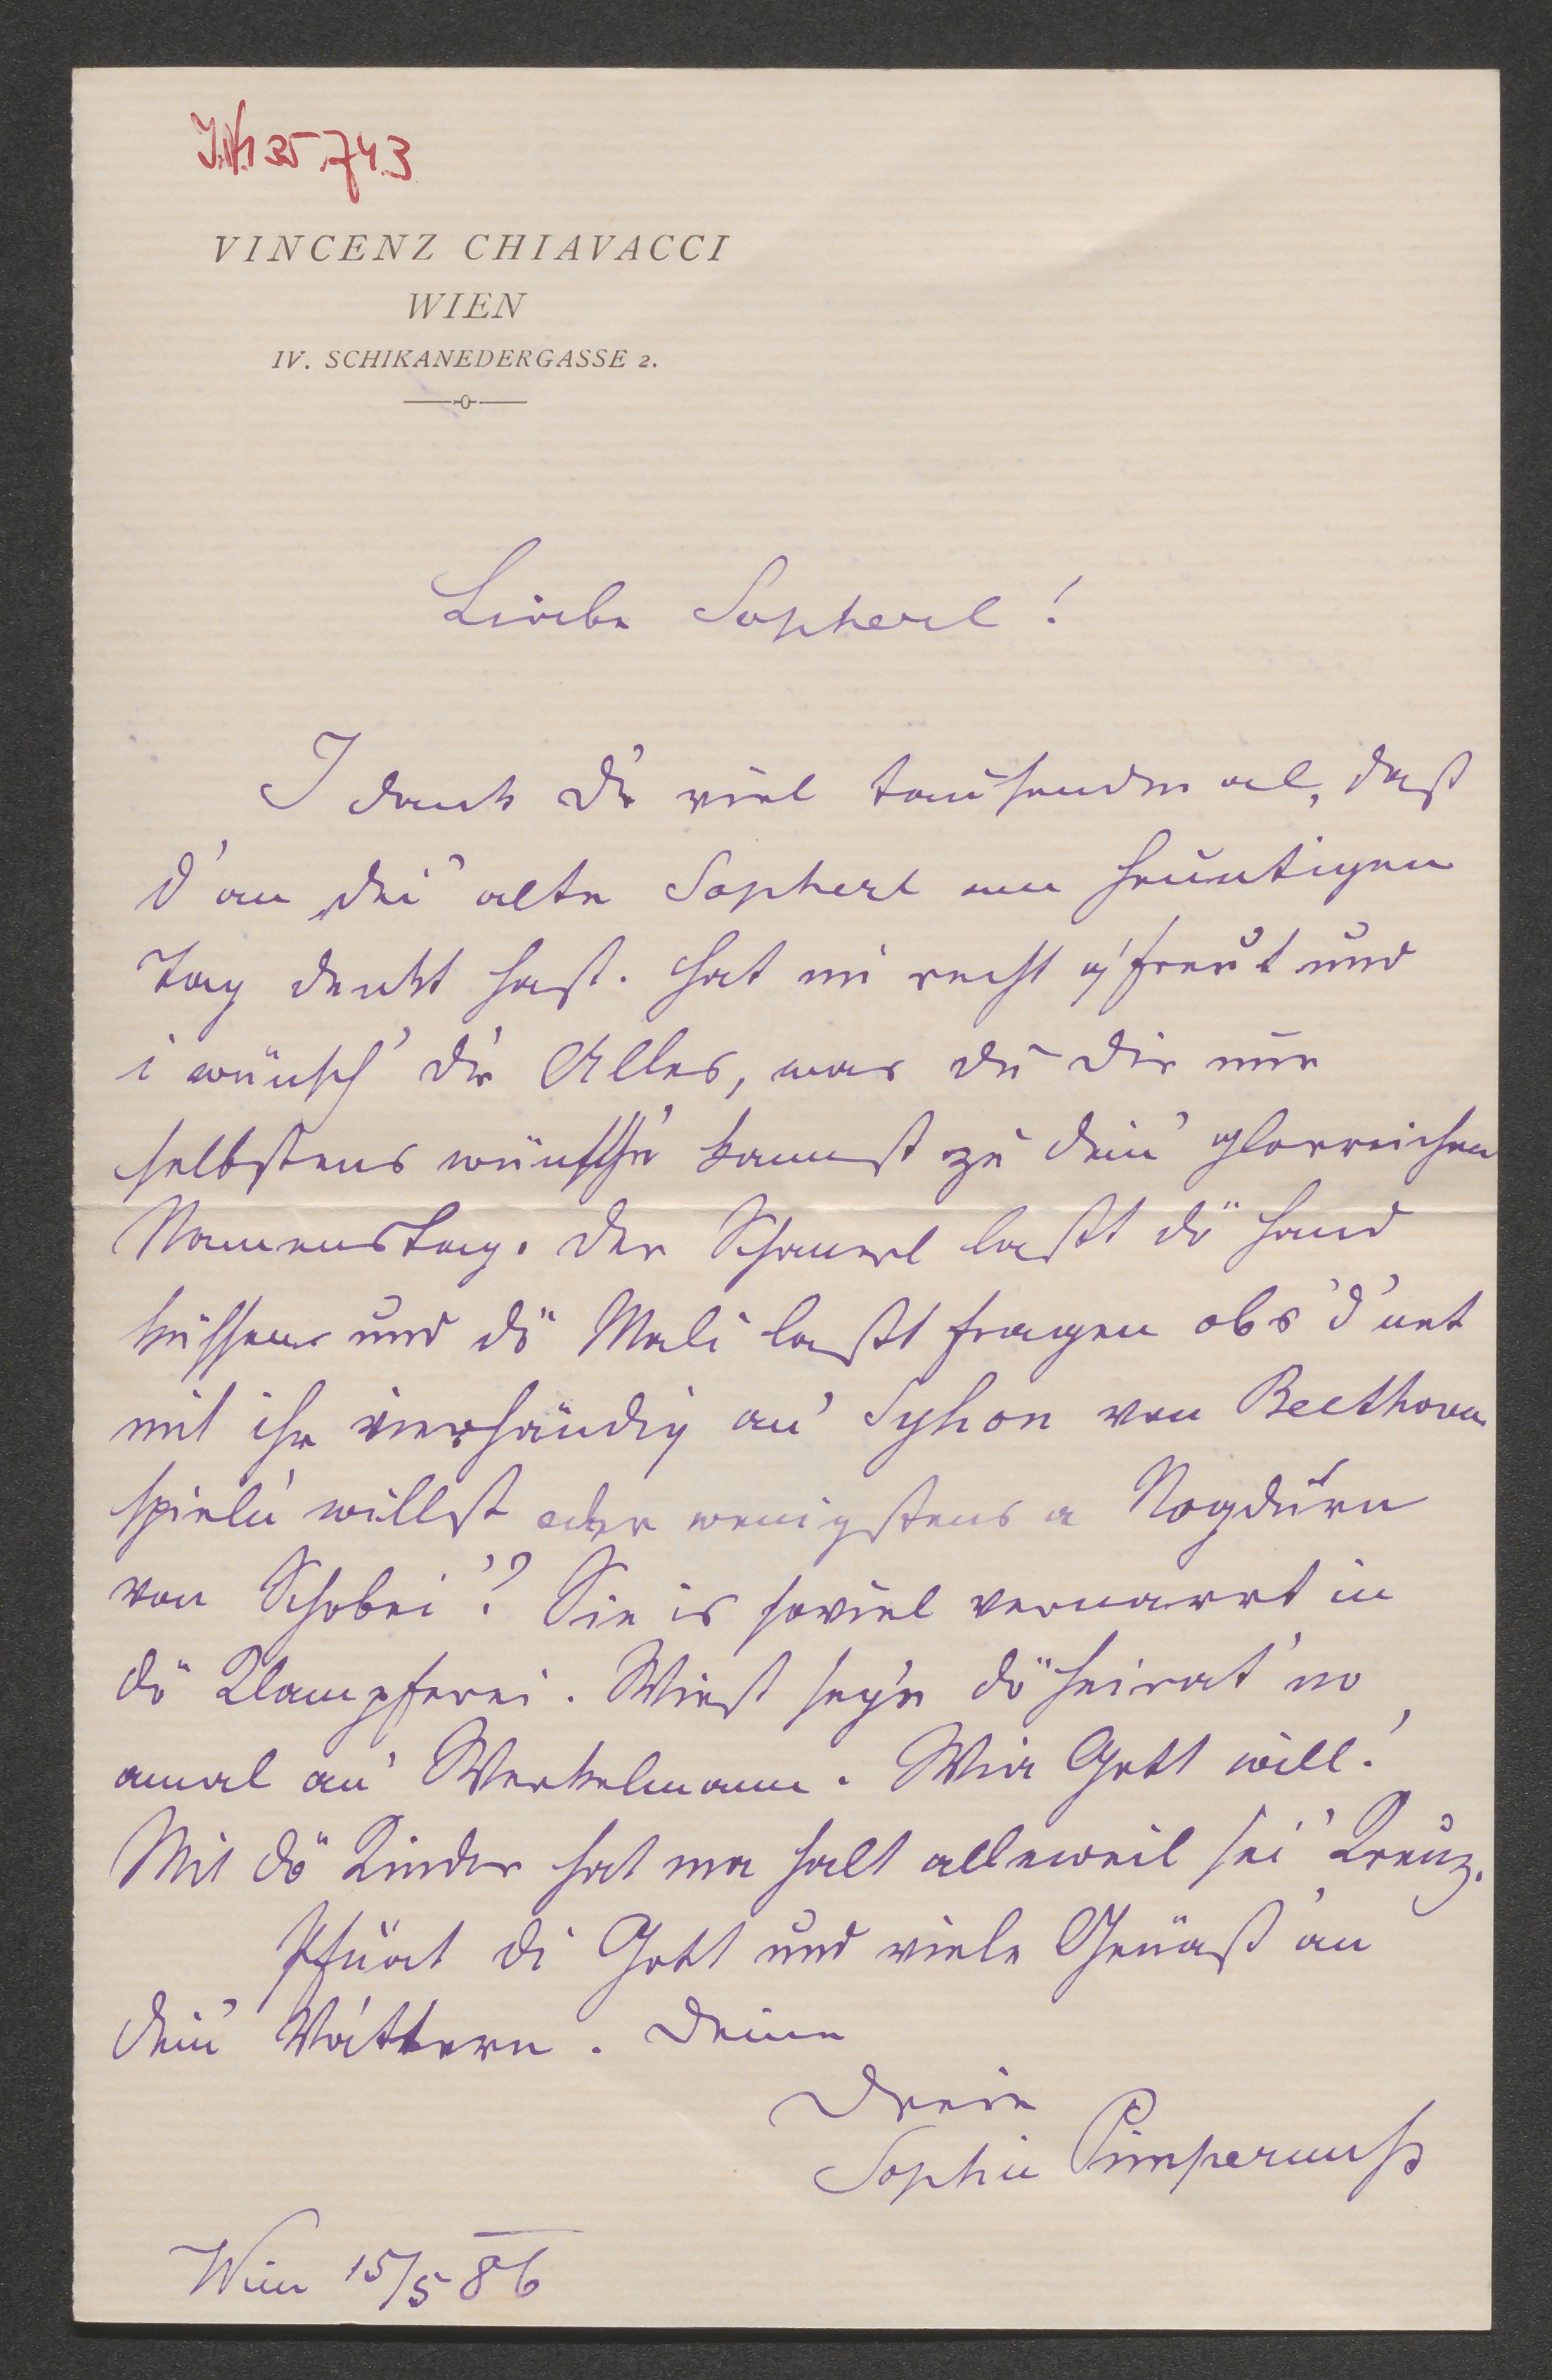 I.N. 135.743
VINCENZ CHIAVACCI
WIEN
IV. SCHIKANEDERGASSE 2.
Liebe Sopherl!
I dank dir viel tausendmal, daß
d' an dei' alte Sopherl am heuntigen
Tag denkt hast. Hat mi recht g'freut und
i wünsch' dir Alles, was du dir nur
selbstens wünsch'n kannst zu dein' glorreichen
Namenstag. Der Schanerl laßt dö Hand
küssen und dö Mali laßt fragen obs'd' net
mit ihr vierhändig an' Syfon von Beethoven
spiel'n willst oder wenigstens a Nogdurn
von Schobei'? Sie is soviel vernarrt in
dö Klampferei. Wirst seg'n dö heirat' no
amal an' Werkelmann. Wia Gott will!
Mit dö Kinder hat ma halt alleweil sei' Kreuz.
Pfüat di Gott und viele Grüaß an
dein' Vättern. Deine
Deine
Sophie Pimpernuß
Wien 15/5 86